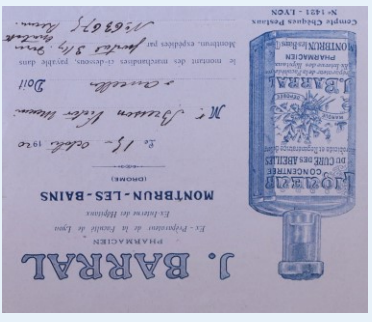 J. BARRAL
PHARMACIEN
Ex-Préparateur de la Faculté de Lyon
Ex-Interne des Hôpitaux
MONTBRUN-LES-BAINS
(DROME)
Le 15 octobre 1920
Mr. Bresson Victor
Doit
le montant des marchandises ci-dessous, payable dans
Montbrun, expédiées par
No 63675
LIQUEUR
CONCENTRÉE
DU CURÉ DES ABEILLES
MARQUE
DÉPOSÉE
J. BARRAL
Ex-Interne des Hôpitaux
PHARMACIEN
MONTBRUN-LES-BAINS
Compte Chèques Postaux
No 1421 - LYON